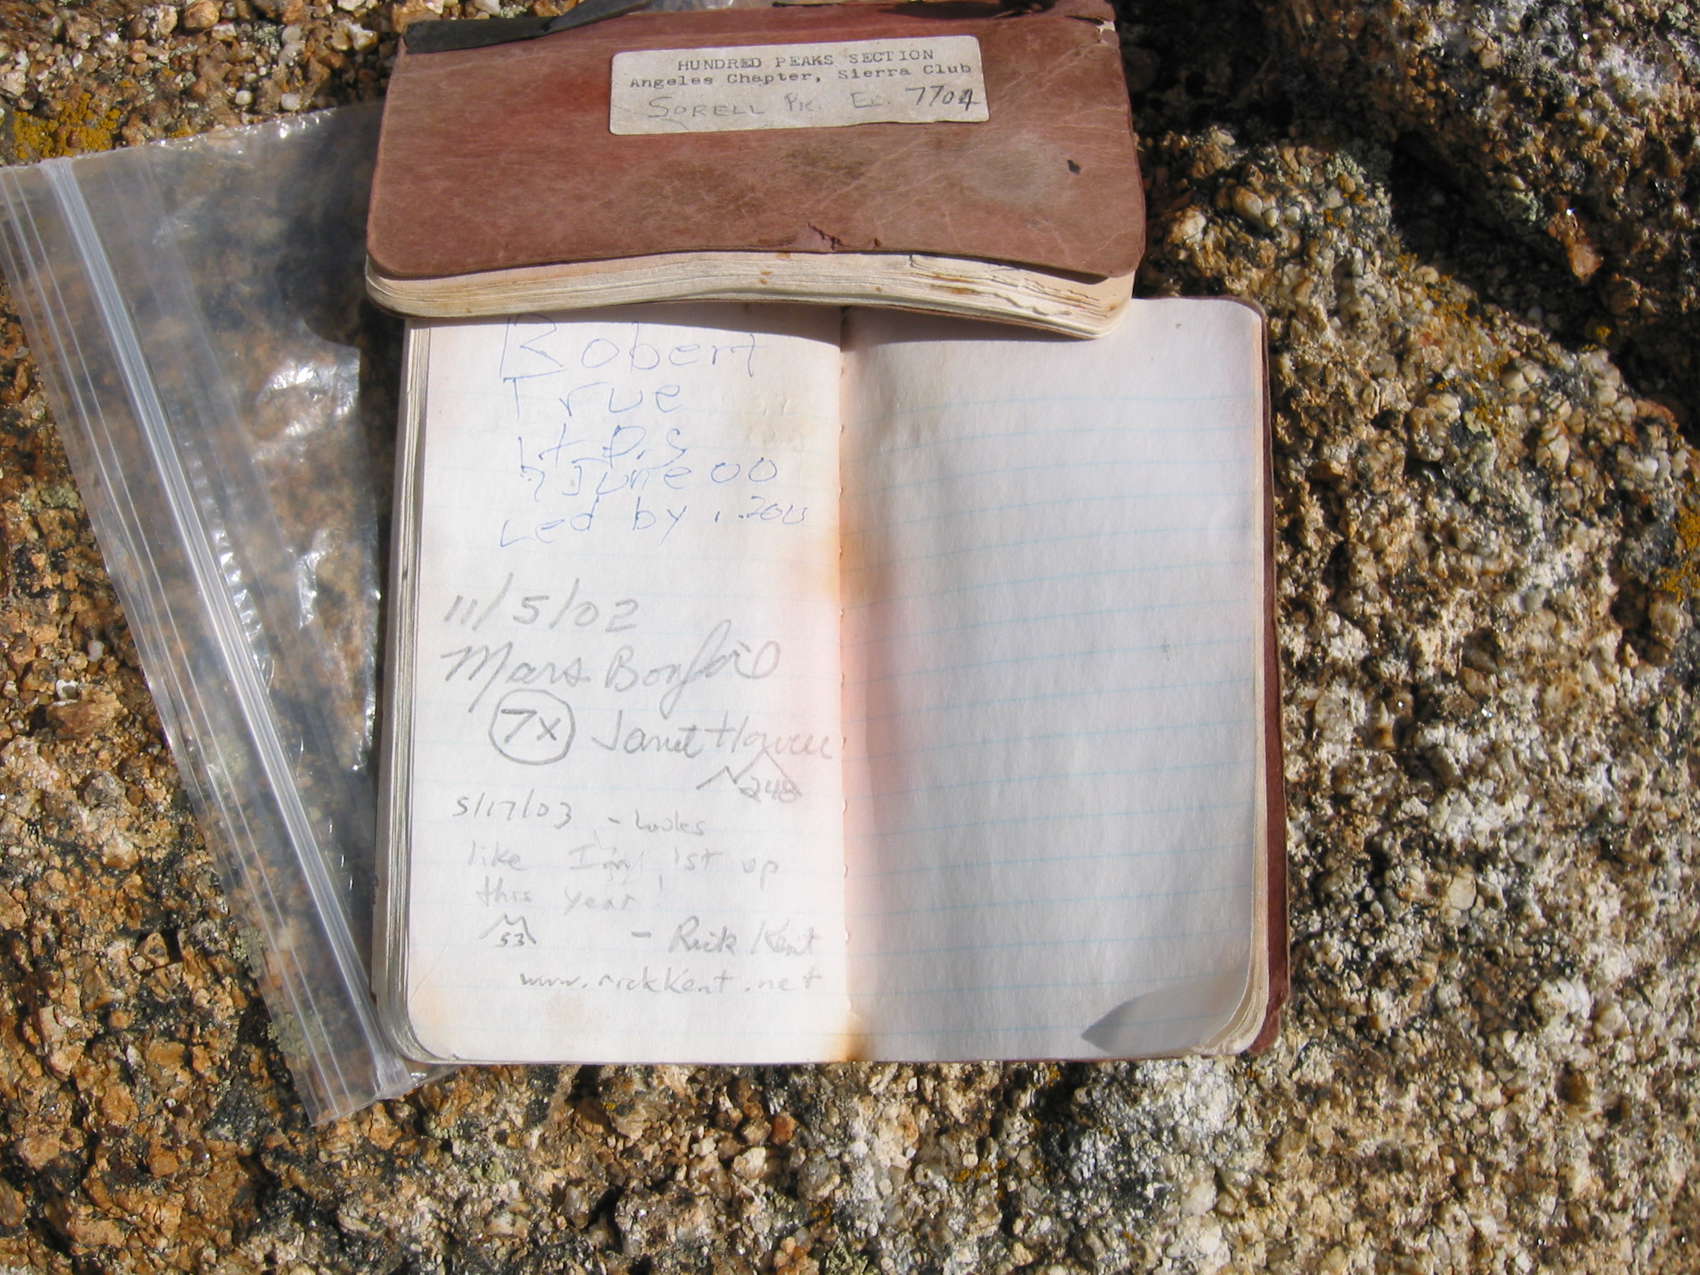 HUNDRED PEAKS SECTION
Angeles Chapter, Sierra Club
SORELL PK. EL. 7704
Robert
True
H.P.S
June 00
Led by
11/5/02
Mars Bonfire
7x Janet Howell
248
5/17/03 - Looks
like I'm 1st up
this year!
53 - Rick Kent
www.rickkent.net